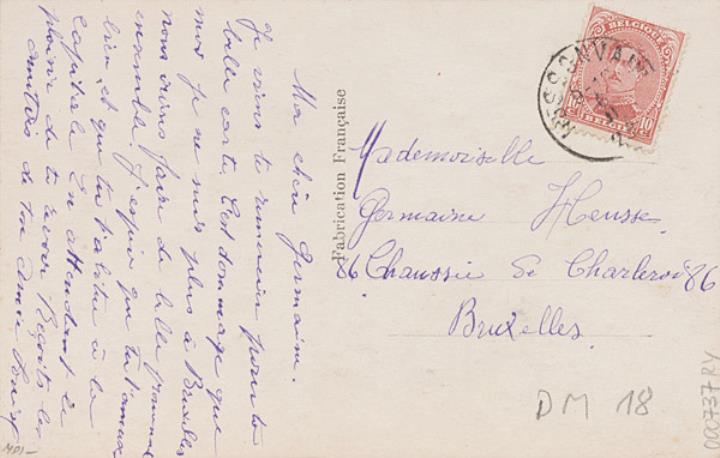 Ma chère Germaine.
Je viens te remercier pour ta
belle carte. C'est dommage que
moi je ne suis plus à Bruxelles
nous irions faire de belle promenade
ensemble. J'espère que tu t'amuse
bien et que tu t'habitue à la
Capitale. En attendant le
plaisir de te revoir Reçoits les
amitiés de ton amie Louise
MDI-
Fabrication Française
BELGIQUE
10 10
BELGIË
Mademoiselle
Germaine Heusse
86 Chaussée de Charleroi 86
Bruxelles.
DM 18
000737RV